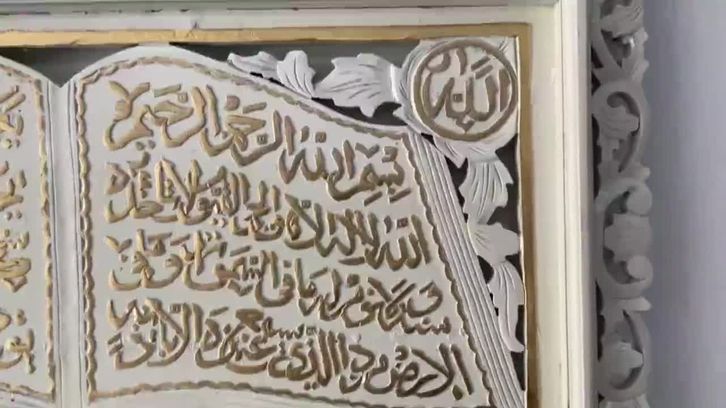 الله
بسم الله الرحمن الرحيم
الله لا اله الا هو الحي القيوم لا تأخذه
سنة ولا نوم له ما في السموات وما في
الارض من ذا الذي يشفع عنده الا باذنه